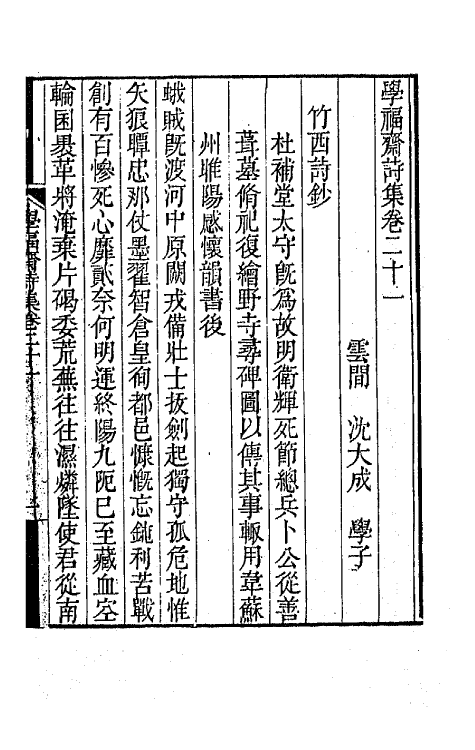 學福齋詩集卷二十一
雲間　沈大成　學子
竹西詩鈔
杜補堂太守旣爲故明衛輝死節總兵卜公從善
葺墓脩祀復繪野寺尋碑圖以傳其事輙用韋蘇
州睢陽感懷韻書後
蛾賊旣渡河中原闕戎備壯士拔劍起獨守孤危地惟
矢狠瞫忠那仗墨翟智倉皇徇都邑慷慨忘鈍利苦戰
創有百慘死心靡貳奈何明運終陽九阨已至藏血空
輪囷褁革將淹棄片碣委荒蕪往往濕燐墜使君從南
學福齋詩集卷二十一